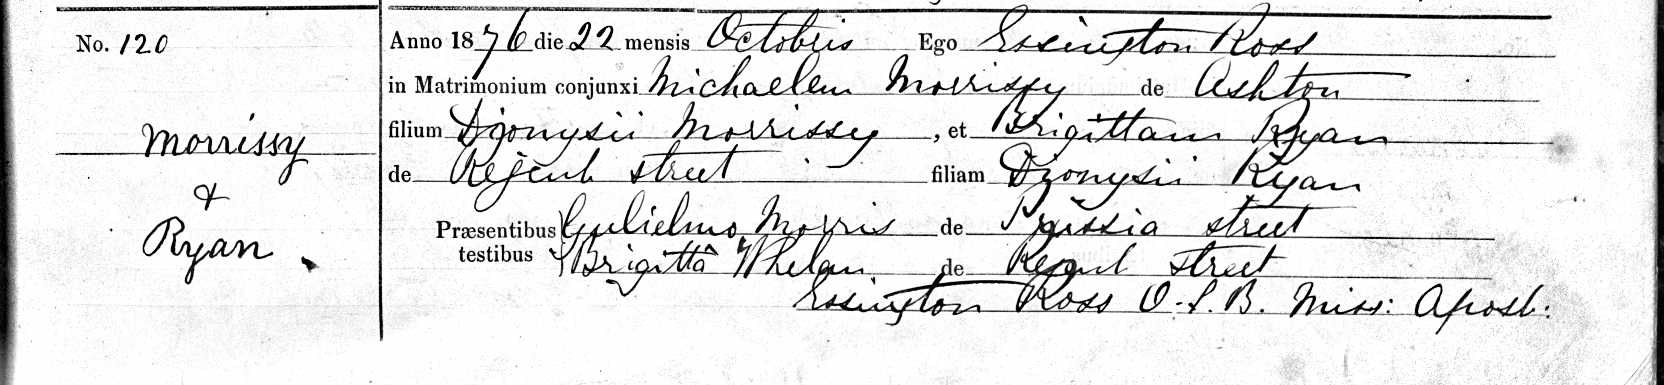 No. 120
Morrissy
&
Ryan
Anno 1876 die 22 mensis Octobris Ego Essington Ross
in Matrimonium conjunxi Michaelem Morrissy de Ashton
filium Dionysii Morrissey, et Brigittam Ryan
de Regent street filiam Dionysii Ryan
Præsentibus testibus Gulielmo Morris de Prussia street
Brigittâ Whelan de Regent street
Essington Ross O.S.B. Miss: Apost: